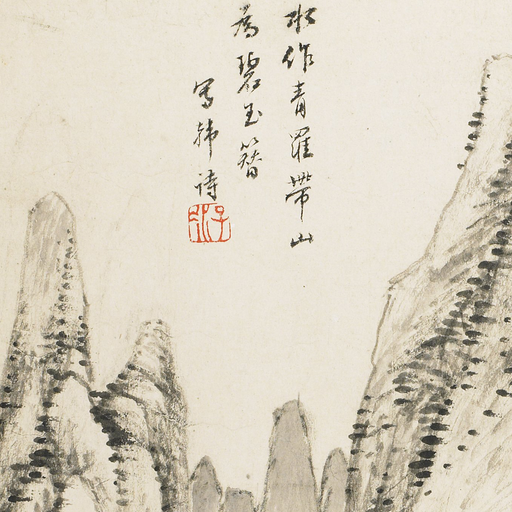 水作青羅帶山
為碧玉簪
寫韓詩